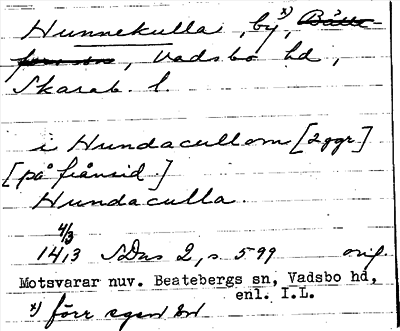 Hunnekulla, by, x) Bälle-
fors sn, Vadsbo hd,
Skarab. l.
i Hundacullom [2 ggr]
[på frånsid.]
Hundaculla.
4/3
1413 SDns 2, s. 599 orig.
Motsvarar nuv. Beatebergs sn, Vadsbo hd,
enl. I.L.
x) förr egen sn